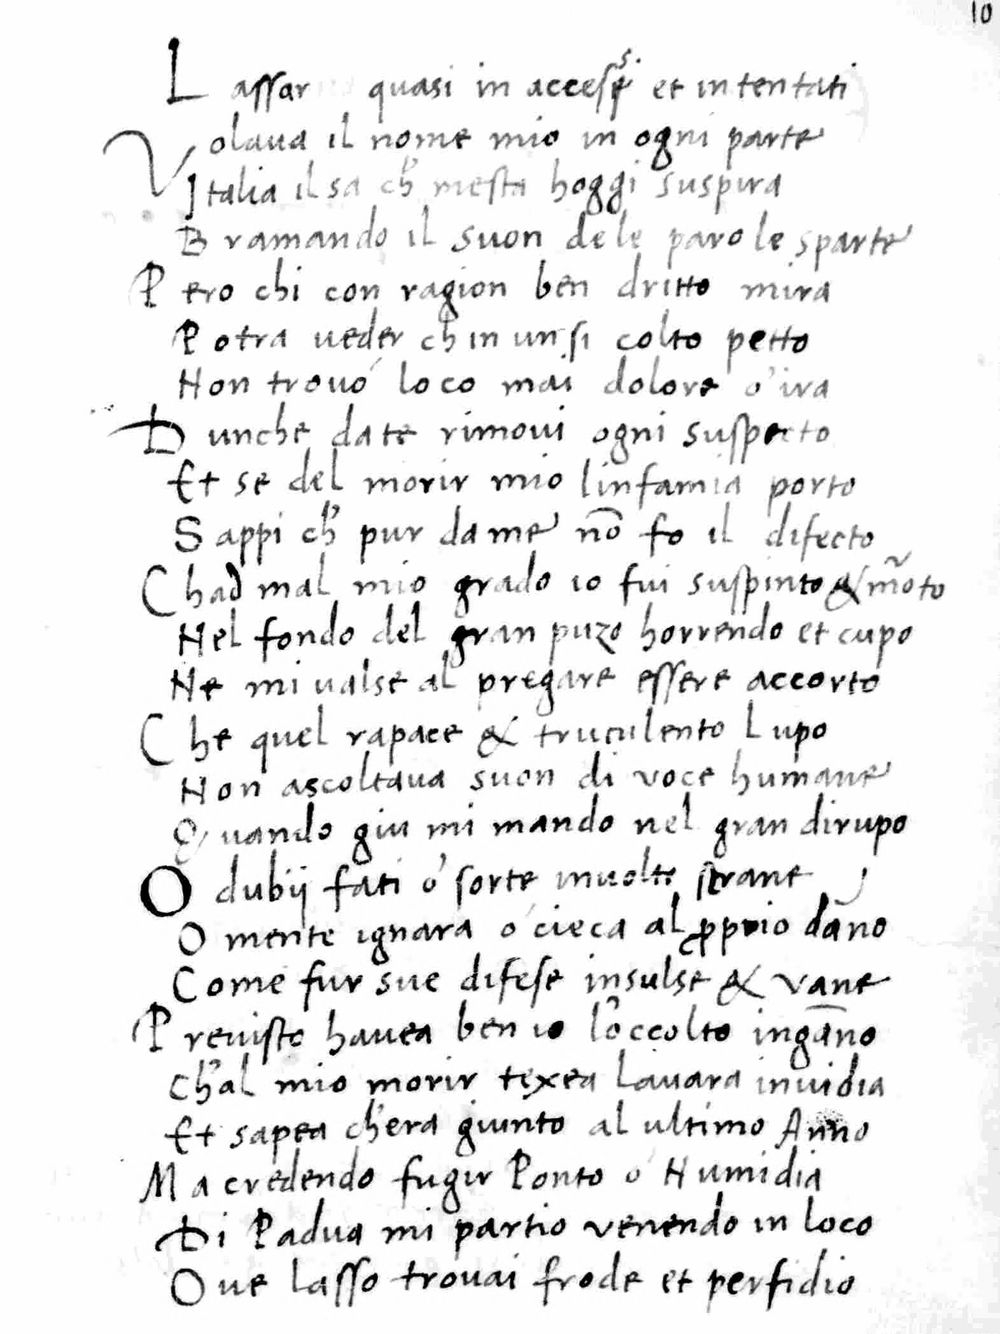 10
Lassar quasi in accesi et intentati
Volaua il nome mio in ogni parte
Italia il sa ch' mesta hoggi suspira
Bramando il suon dele parole sparte
Pero chi con ragion ben dritto mira
Potra ueder ch in un si colto petto
Non trouo loco mai dolore o' ira
Dunche da te rimoui ogni suspecto
Et se del morir mio linfamia porto
Sappi ch' pur da me nõ fo il difecto
Chad mal mio grado io fui suspinto & m̃oto
Nel fondo del gran puzo horrendo et cupo
Ne mi ualse al pregare essere accorto
Che quel rapace & truculento Lupo
Non ascoltaua suon di voce humane
Quando giu mi mando nel gran dirupo
O dubij fati o' sorte inuolte strane
O mente ignara o cieca al ꝓpprio dãno
Come fur sue difese insulse & vane
Preuisto hauea ben io l'occolto ingãno
Ch'al mio morir texea lauara inuidia
Et sapea ch'era giunto al ultimo Anno
Ma credendo fugir Ponto o Numidia
Di Padua mi partio venendo in loco
Oue lasso trouai frode et perfidio